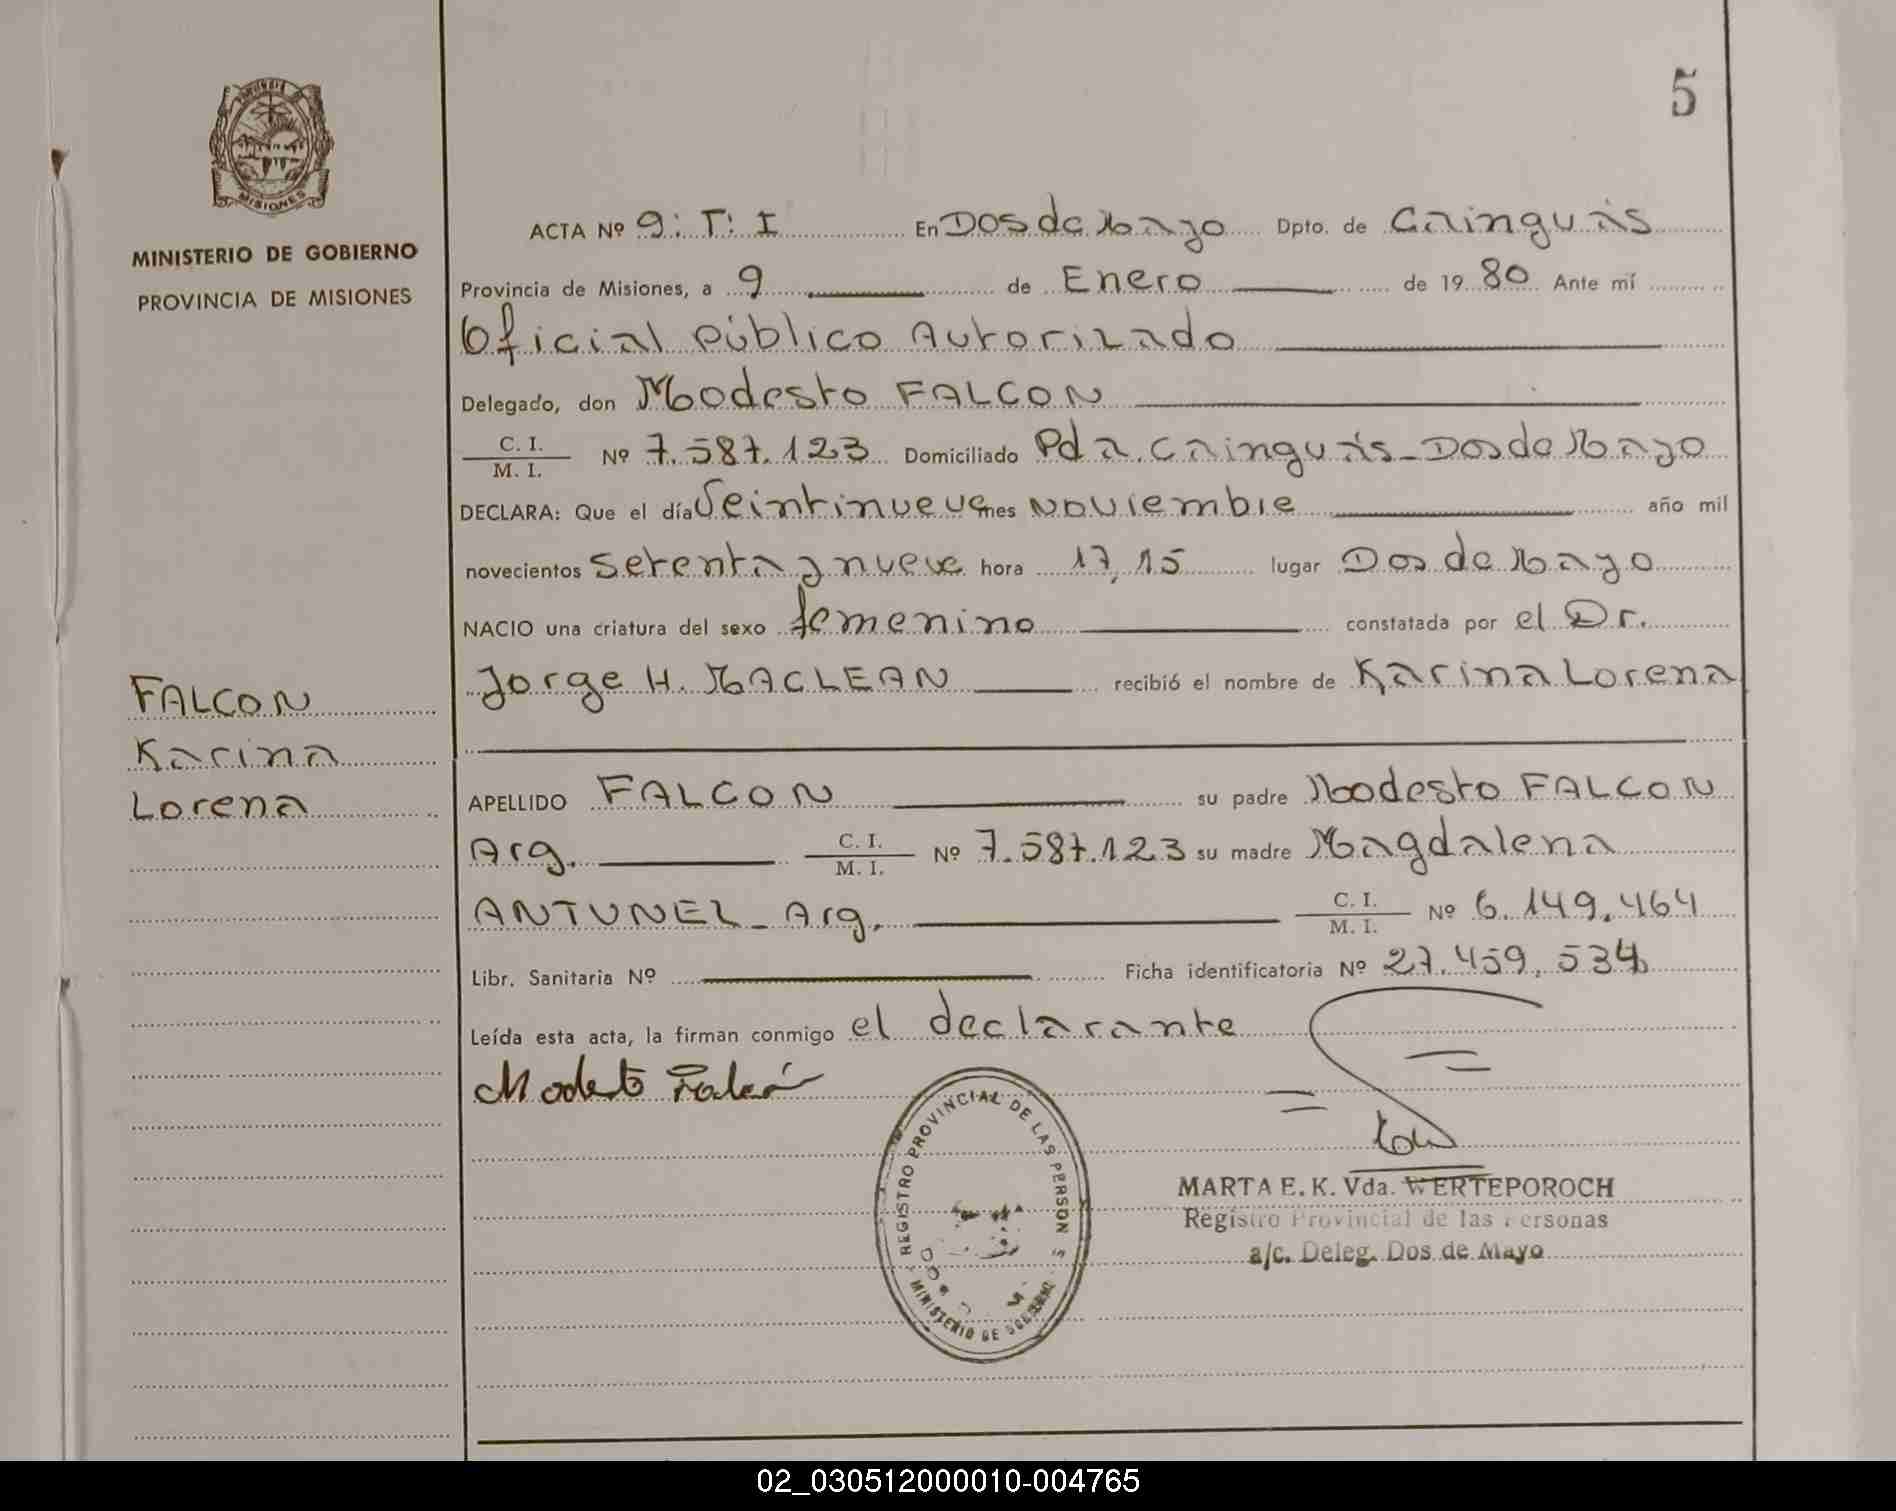 5
PROVINCIA DE
MISIONES
MINISTERIO DE GOBIERNO
PROVINCIA DE MISIONES
ACTA Nº 9: T: I En Dos de Mayo Dpto. de Cainguás
Provincia de Misiones, a 9 de Enero de 1980 Ante mí
Oficial Público Autorizado
Delegado, don Modesto FALCON
C. I.
M. I. Nº 7.587.123 Domiciliado Pda. Cainguás - Dos de Mayo
DECLARA: Que el día Veintinueve mes Noviembre año mil
novecientos setenta y nueve hora 17,15 lugar Dos de Mayo
NACIO una criatura del sexo femenino constatada por el Dr.
Jorge H. MACLEAN recibió el nombre de Karina Lorena
FALCON
Karina
Lorena
APELLIDO FALCON su padre Modesto FALCON
Arg. C. I.
M. I. Nº 7.587.123 su madre Magdalena
ANTUNEZ - Arg. C. I.
M. I. Nº 6.149.464
Libr. Sanitaria Nº Ficha identificatoria Nº 27.459.534
Leída esta acta, la firman conmigo el declarante
Modesto Falcón
REGISTRO PROVINCIAL DE LAS PERSONAS
MINISTERIO DE GOBIERNO
MARTA E. K. Vda. WERTEPOROCH
Registro Provincial de las Personas
a/c. Deleg. Dos de Mayo
02_030512000010-004765